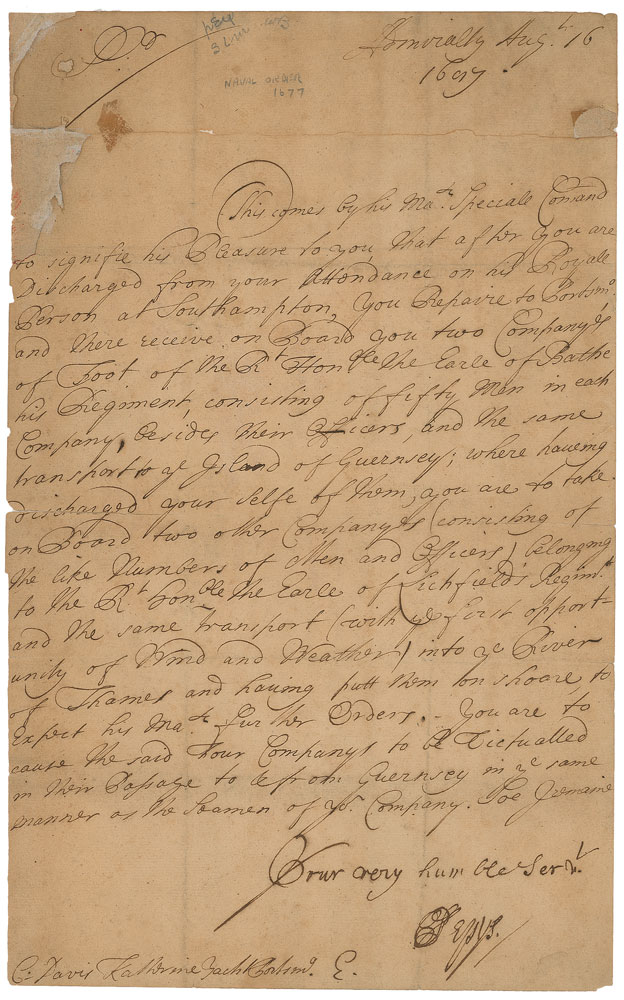 Sr
Admiralty Augt. 16
1687.
NAVAL ORDER
1677
This comes by his Mats. Speciale Comand
to signifie his Pleasure to you, that after you are
Discharged from your Attendance on his Royale
Person at Southampton, you Repaire to Portsmo.
and there receive on Board you two Companyes
of Foot of the Rt Honble the Earle of Bathe
his Regiment, consisting of fifty Men in each
Company, besides their Officers, and the same
transport to ye Island of Guernsey; where haveing
discharged your selfe of them, you are to take
on Board two other Companyes (consisting of
the like Numbers of Men and Officers) belonging
to the Rt Honble the Earle of Lichfield's Regimt.
and the same transport (with ye first opport-
unity of Wind and Weather) into ye River
of Thames and having putt them on shoare, to
Expect his Mats. further Orders. - You are to
cause the said Four Companys to be Victualled
in their Passage to & from Guernsey in ye same
manner as the Seamen of yor. Company. Soe I remaine
Your very humble Servt.
S Pepys.
C: Davis Katherine Yacht Portsmo. E.